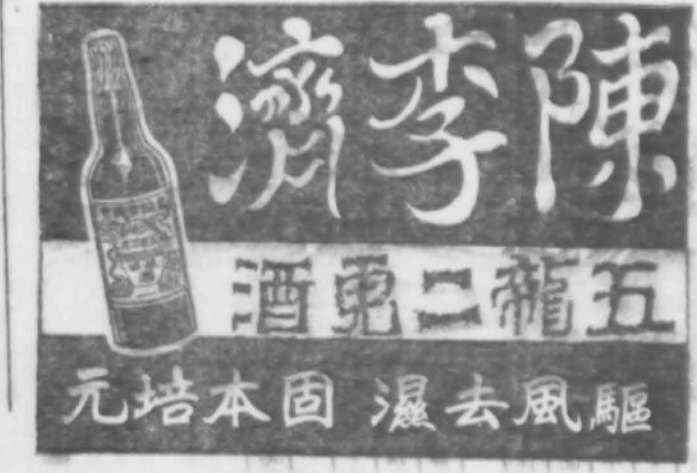 陳李濟
五龍二更酒
驅風去濕 固本培元